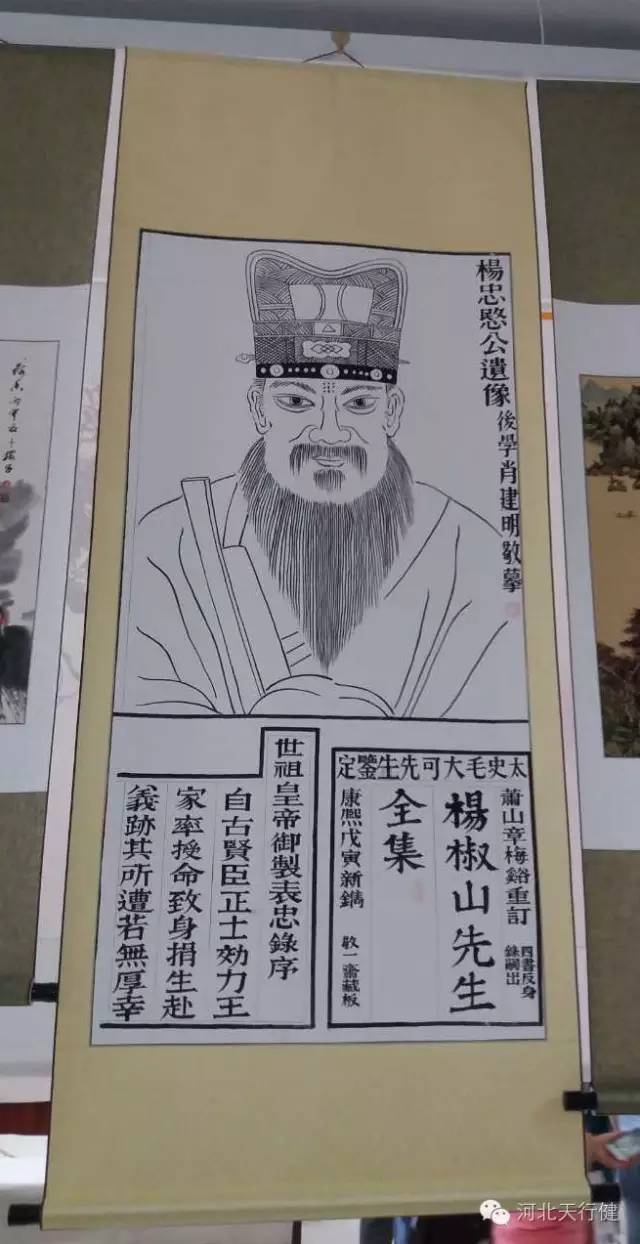 楊忠愍公遺像
後學肖建明敬摹
太史毛大可先生鑒定
蕭山章梅谿重訂
四書反身
錄嗣出
楊椒山先生
全集
康熙戊寅新鐫
敬一齋藏板
世祖皇帝御製表忠錄序
自古賢臣正士効力王
家率授命致身捐生赴
義跡其所遭若無厚幸
河北天行健